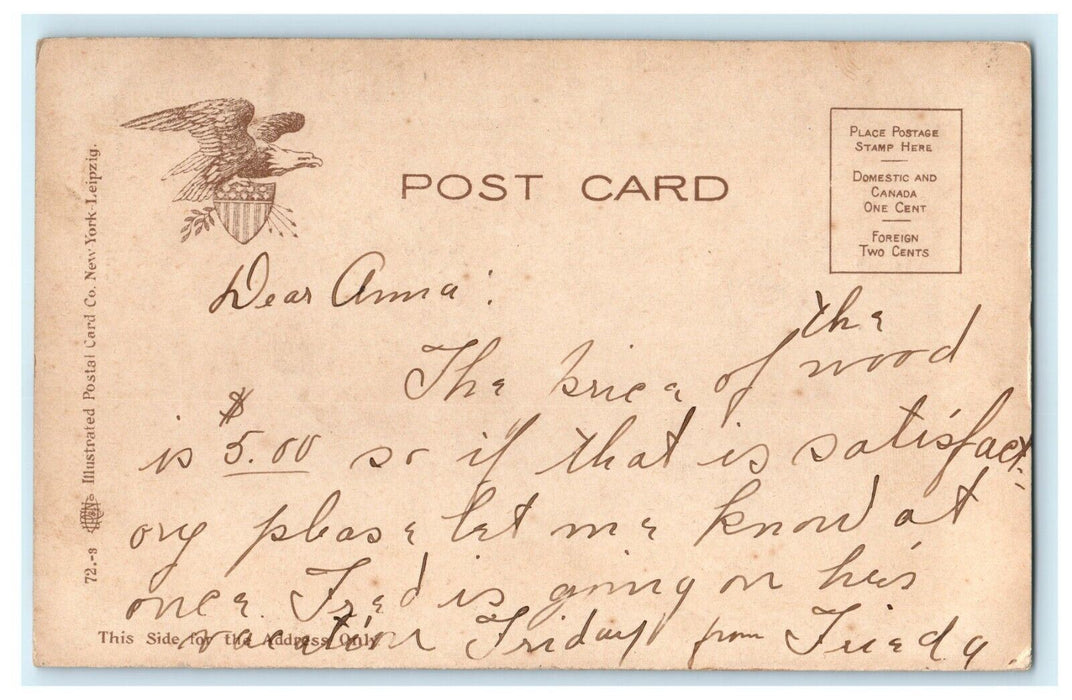 POST CARD
PLACE POSTAGE
STAMP HERE
DOMESTIC AND
CANADA
ONE CENT
FOREIGN
TWO CENTS
72.-3
Illustrated Postal Card Co. New York-Leipzig.
Dear Anna:
the
The price of wood
is $5.00 so if that is satisfact-
ory please let me know at
once. Fred is going on his
vacation Friday from Frieda.
This Side for the Address Only